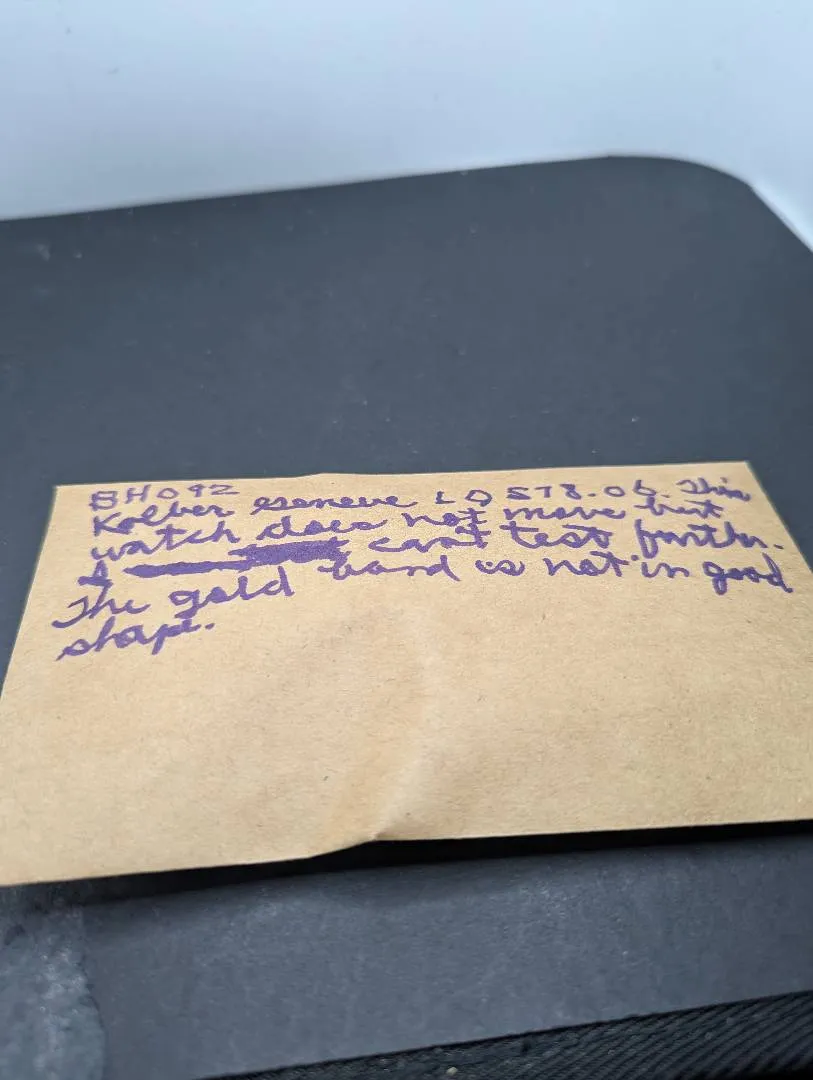 BH092
Kolber geneve LD578.06. This
watch does not move but
I can't test further.
The gold band is not in good
shape.